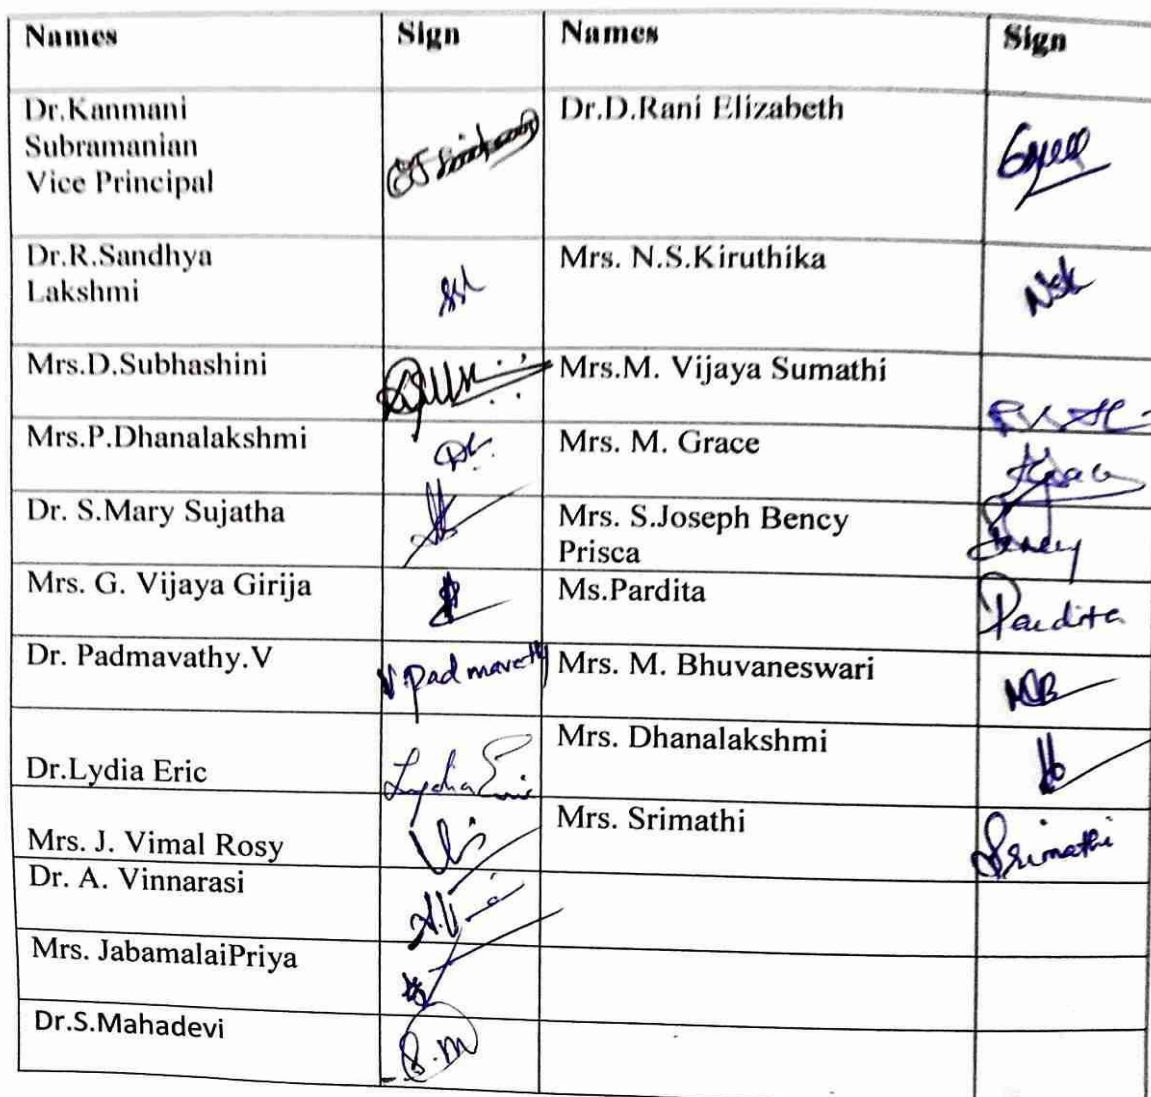 Names Sign Names Sign
Dr.Kanmani
Subramanian
Vice Principal
Dr.D.Rani Elizabeth
Dr.R.Sandhya
Lakshmi
Mrs. N.S.Kiruthika
NSK
Mrs.D.Subhashini
Mrs.M. Vijaya Sumathi
Mrs.P.Dhanalakshmi
Mrs. M. Grace
Grace
Dr. S.Mary Sujatha
Mrs. S.Joseph Bency
Prisca
Bency
Mrs. G. Vijaya Girija
Ms.Pardita
Pardita
Dr. Padmavathy.V
V.Padmavathy
Mrs. M. Bhuvaneswari
MB
Dr.Lydia Eric
Lydia Eric
Mrs. Dhanalakshmi
Mrs. J. Vimal Rosy
Mrs. Srimathi
Srimathi
Dr. A. Vinnarasi
Mrs. JabamalaiPriya
Dr.S.Mahadevi
S.M